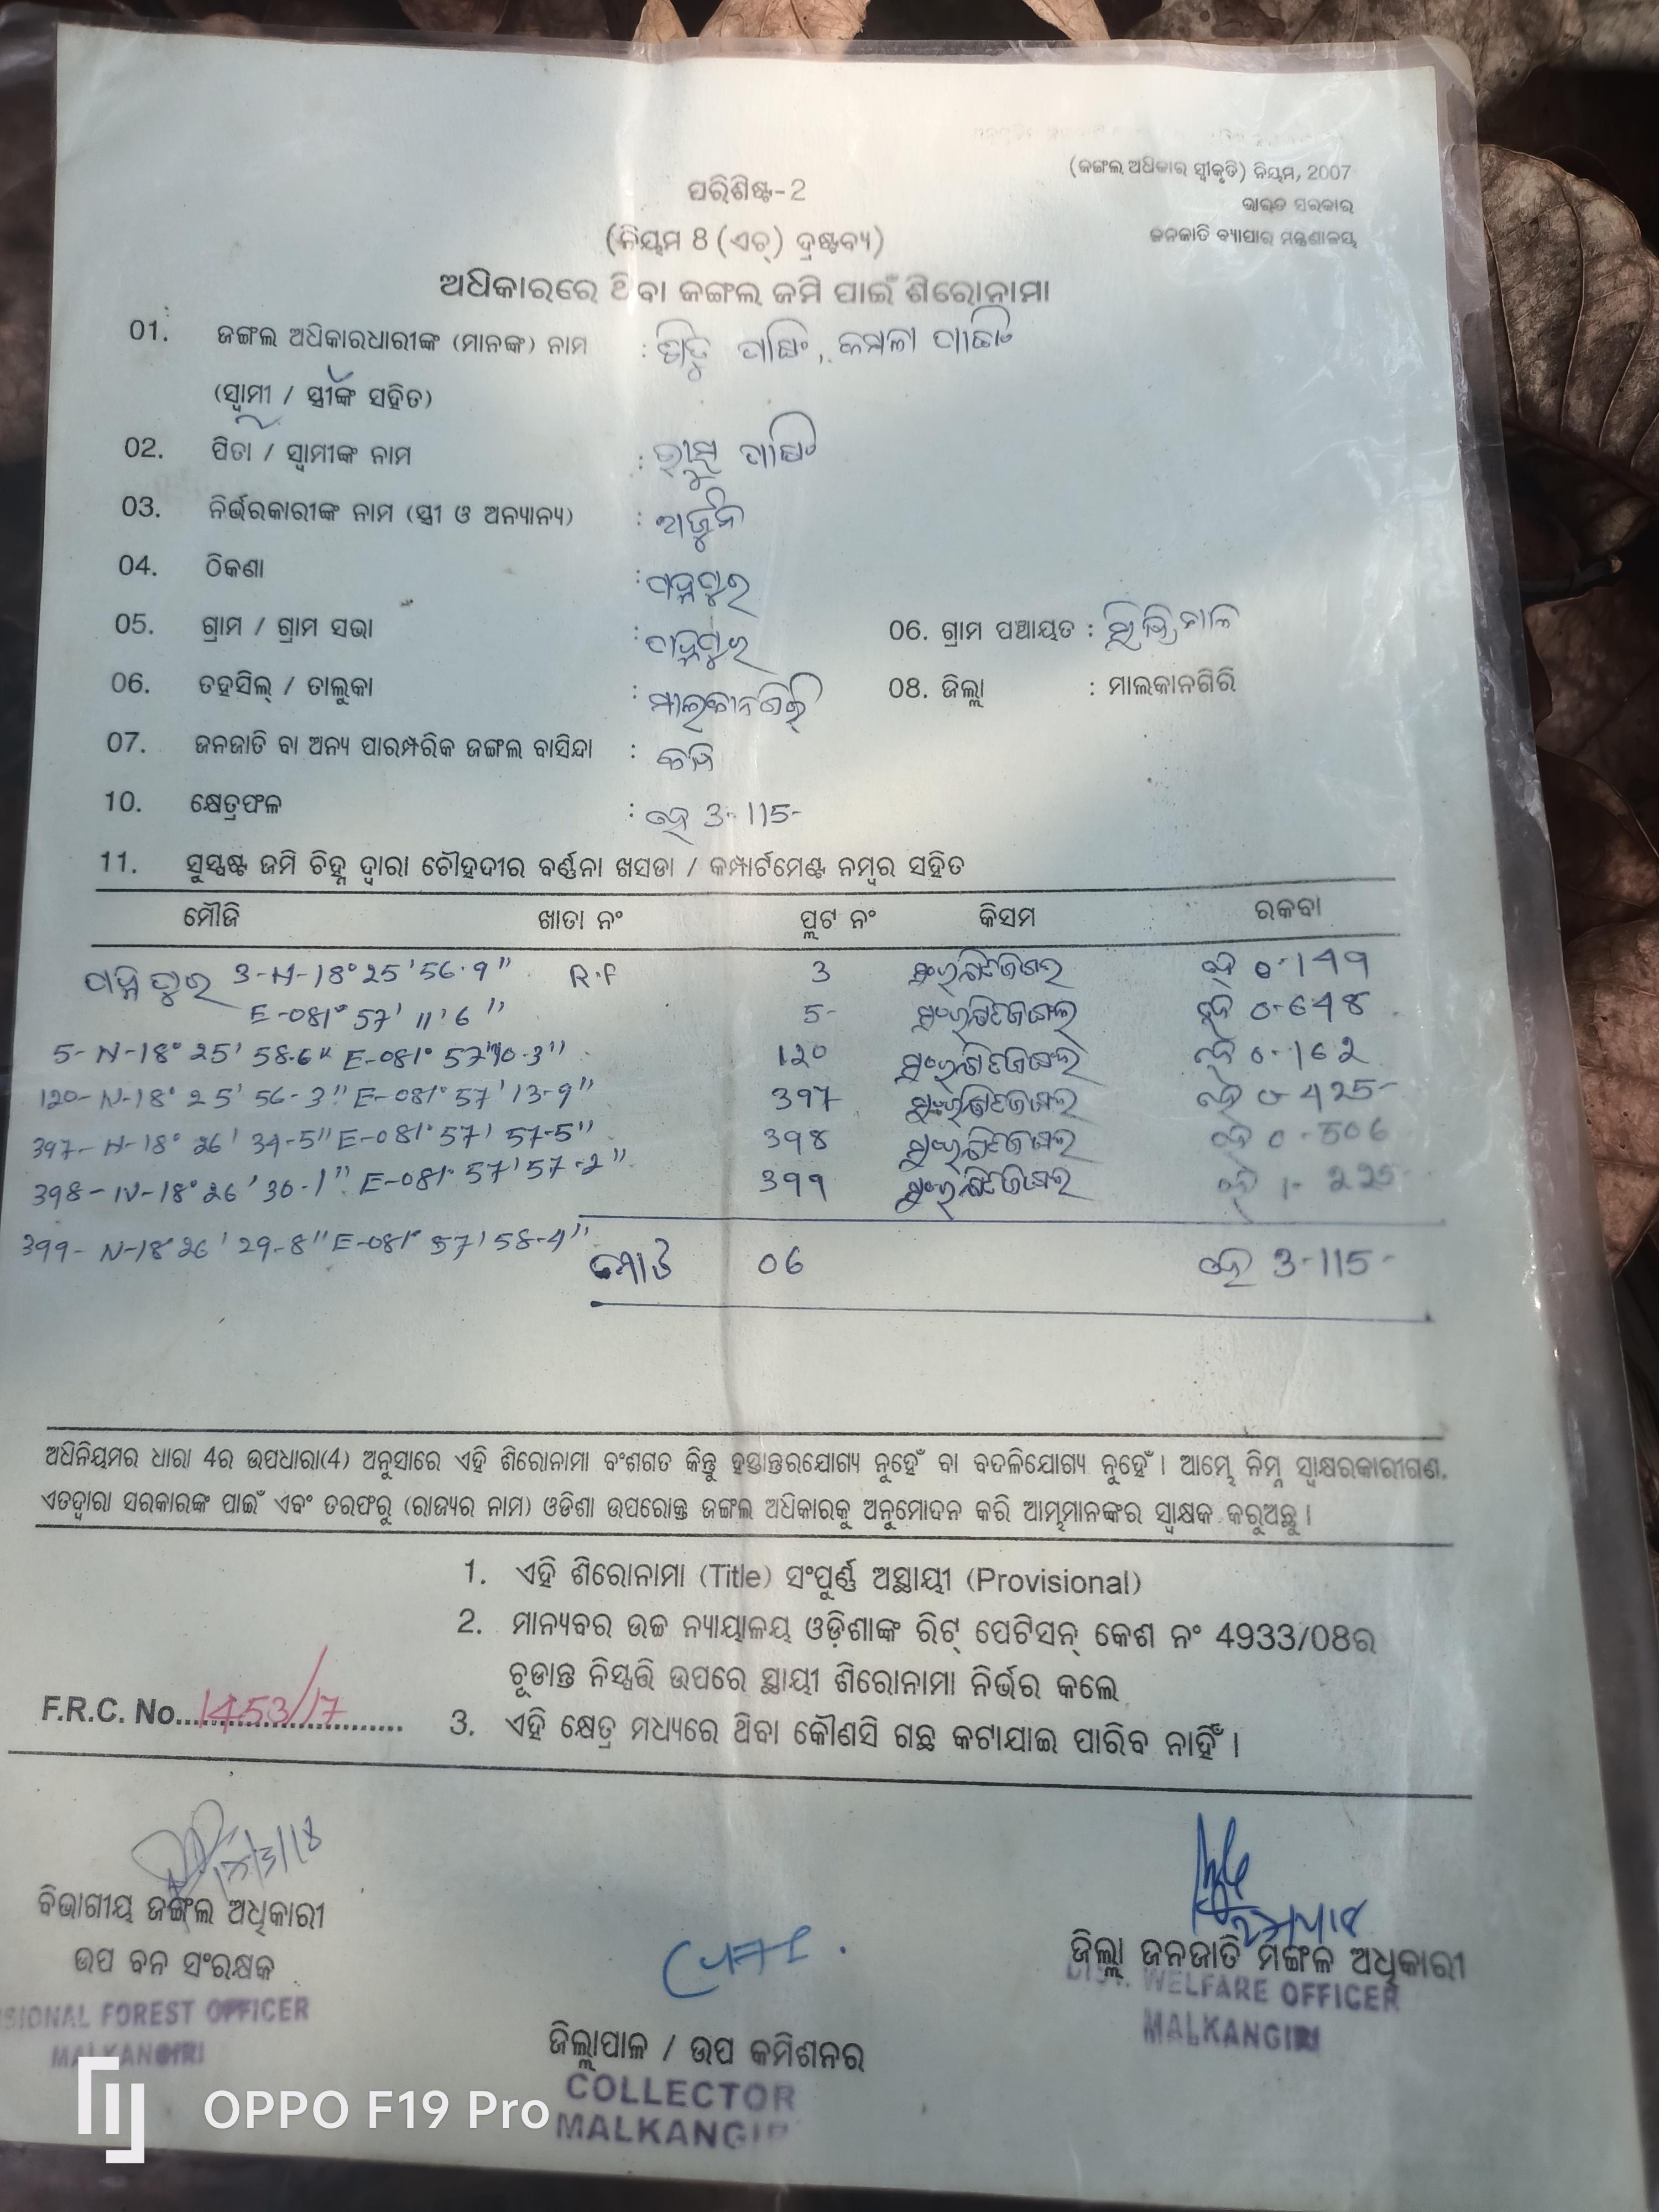 (ଜଙ୍ଗଲ ଅଧିକାର ସ୍ୱୀକୃତି) ନିୟମ, 2007
ଭାରତ ସରକାର
ଜନଜାତି ବ୍ୟାପାର ମନ୍ତ୍ରଣାଳୟ
ପରିଶିଷ୍ଟ-2
(ନିୟମ 8 (ଏଚ୍) ଦ୍ରଷ୍ଟବ୍ୟ)
ଅଧିକାରରେ ଥିବା ଜଙ୍ଗଲ ଜମି ପାଇଁ ଶିରୋନାମା
01. ଜଙ୍ଗଲ ଅଧିକାରଧାରୀଙ୍କ (ମାନଙ୍କ) ନାମ :
(ସ୍ୱାମୀ / ସ୍ତ୍ରୀଙ୍କ ସହିତ)
02. ପିତା / ସ୍ୱାମୀଙ୍କ ନାମ :
03. ନିର୍ଭରକାରୀଙ୍କ ନାମ (ସ୍ତ୍ରୀ ଓ ଅନ୍ୟାନ୍ୟ) : ଅର୍ଜୁନ
04. ଠିକଣା :
05. ଗ୍ରାମ / ଗ୍ରାମ ସଭା : 06. ଗ୍ରାମ ପଞ୍ଚାୟତ :
06. ତହସିଲ୍ / ତାଲୁକା : ମାଲକାନଗିରି 08. ଜିଲ୍ଲା : ମାଲକାନଗିରି
07. ଜନଜାତି ବା ଅନ୍ୟ ପାରମ୍ପରିକ ଜଙ୍ଗଲ ବାସିନ୍ଦା :
10. କ୍ଷେତ୍ରଫଳ : ହେ 3-115-
11. ସୁସ୍ପଷ୍ଟ ଜମି ଚିହ୍ନ ଦ୍ୱାରା ଚୌହଦୀର ବର୍ଣ୍ଣନା ଖସଡା / କମ୍ପାର୍ଟମେଣ୍ଟ ନମ୍ବର ସହିତ
ମୌଜି ଖାତା ନଂ ପ୍ଲଟ ନଂ କିସମ ରକବା
3-N-18° 25' 56.9" R.F 3 ହେ 0-149
E-081° 57' 11' 6" 5- ହେ 0-648
5-N-18° 25' 58.6" E-081° 57' 10-3" 120 ହେ 0-162
120-N-18° 25' 56-3" E-081° 57' 13-9" 397 ହେ 0-425-
397-N-18° 26' 34-5" E-081° 57' 57-5" 398 ହେ 0-506
398-N-18° 26' 30-1" E-081° 57' 57-2" 399 ହେ 1-225
399-N-18° 26' 29-8" E-081° 57' 58-4"
ମୋଟ 06 ହେ 3-115-
ଅଧିନିୟମର ଧାରା 4ର ଉପଧାରା(4) ଅନୁସାରେ ଏହି ଶିରୋନାମା ବଂଶଗତ କିନ୍ତୁ ହସ୍ତାନ୍ତରଯୋଗ୍ୟ ନୁହେଁ ବା ବଦଳିଯୋଗ୍ୟ ନୁହେଁ । ଆମ୍ଭେ ନିମ୍ନ ସ୍ୱାକ୍ଷରକାରୀଗଣ,
ଏତଦ୍ୱାରା ସରକାରଙ୍କ ପାଇଁ ଏବଂ ତରଫରୁ (ରାଜ୍ୟର ନାମ) ଓଡିଶା ଉପରୋକ୍ତ ଜଙ୍ଗଲ ଅଧିକାରକୁ ଅନୁମୋଦନ କରି ଆମ୍ଭମାନଙ୍କର ସ୍ୱାକ୍ଷକ କରୁଅଛୁ ।
1. ଏହି ଶିରୋନାମା (Title) ସଂପୁର୍ଣ୍ଣ ଅସ୍ଥାୟୀ (Provisional)
2. ମାନ୍ୟବର ଉଚ୍ଚ ନ୍ୟାୟାଳୟ ଓଡ଼ିଶାଙ୍କ ରିଟ୍ ପେଟିସନ୍ କେଶ ନଂ 4933/08ର
ଚୂଡାନ୍ତ ନିସ୍ପତ୍ତି ଉପରେ ସ୍ଥାୟୀ ଶିରୋନାମା ନିର୍ଭର କଲେ
F.R.C. No. 1453/17
3. ଏହି କ୍ଷେତ୍ର ମଧ୍ୟରେ ଥିବା କୌଣସି ଗଛ କଟାଯାଇ ପାରିବ ନାହିଁ ।
ବିଭାଗୀୟ ଜଙ୍ଗଲ ଅଧିକାରୀ
ଉପ ବନ ସଂରକ୍ଷକ
SIONAL FOREST OFFICER
MALKANGIRI
ଜିଲ୍ଲାପାଳ / ଉପ କମିଶନର
COLLECTOR
MALKANGIRI
ଜିଲ୍ଲା ଜନଜାତି ମଙ୍ଗଳ ଅଧିକାରୀ
DIST. WELFARE OFFICER
MALKANGIRI
OPPO F19 Pro